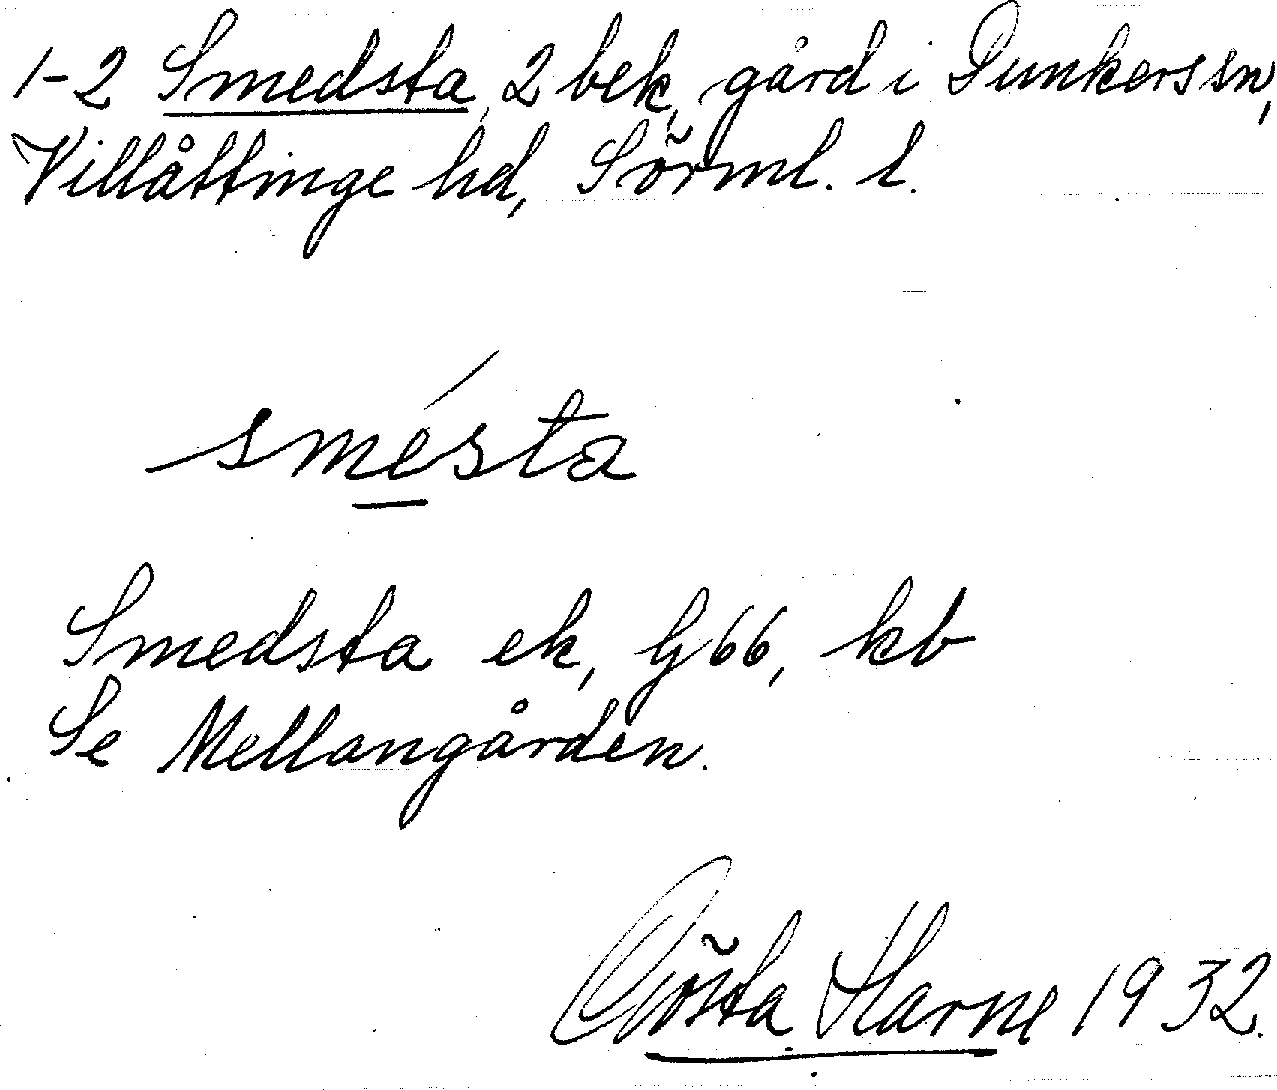 1-2 Smedsta, 2 bek, gård i Dunkers sn,
Villåttinge hd, Sörml. l.
smésta
Smedsta ek, G 66, kb
Se Mellangården.
Gösta Harne 1932.